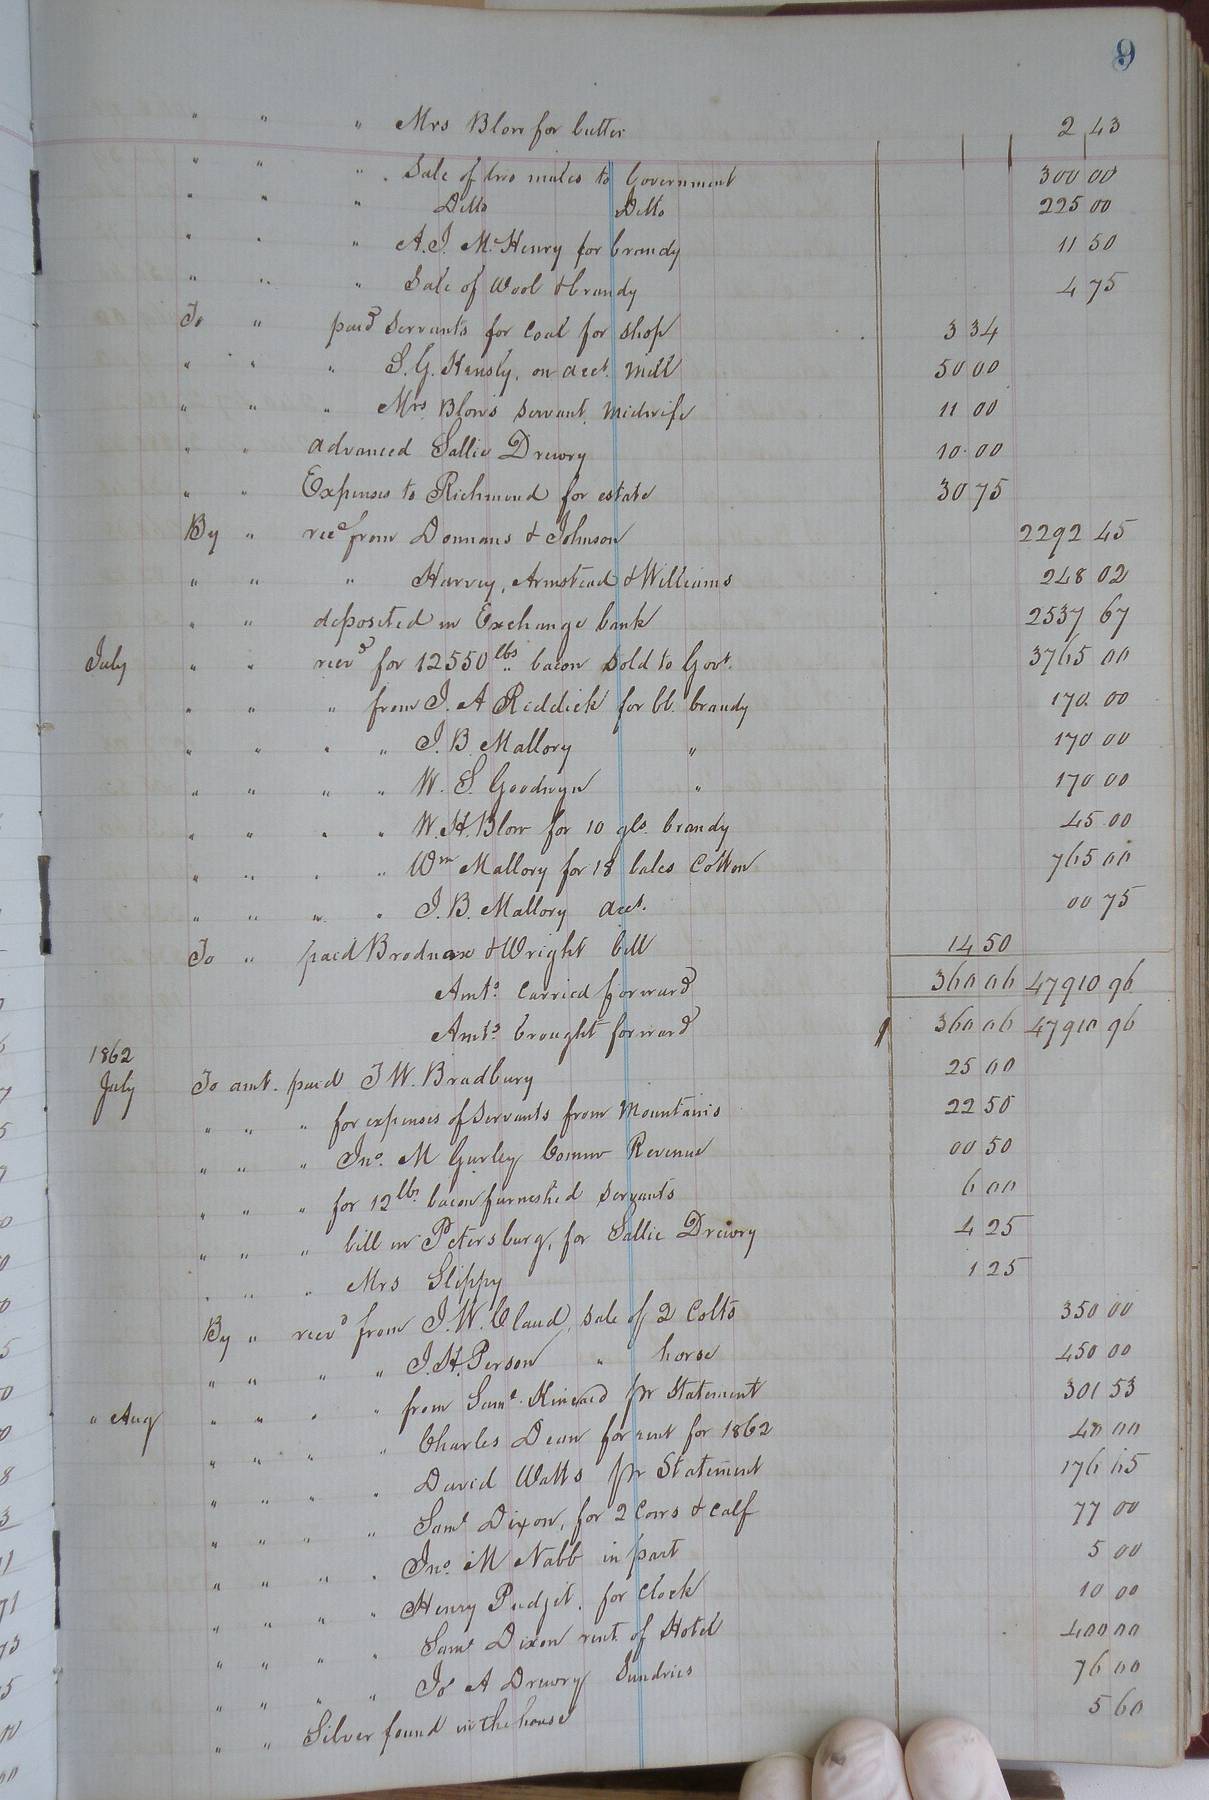 9
" " " Mrs Blow for butter 2 43
" " " Sale of two mules to Government 300 00
" " " Ditto Ditto 225 00
" " " A. J. McHenry for brandy 11 50
" " " Sale of Wool & brandy 4 75
To " paid Servants for coal for shop 3 34
" " " S. G. Hensly, on acct. Mill 50 00
" " " Mrs Blow's servant, Midwife 11 00
" " advanced Sallie Drewry 10 00
" " Expenses to Richmond for estate 30 75
By " recd from Donnans & Johnson 2292 45
" " " Harvey, Armstead & Williams 248 02
" " deposited in Exchange bank 2537 67
July " " recvd for 12550 lbs bacon sold to Govt. 3765 00
" " " from J. A Riddick for bb. brandy 170 00
" " " " J. B. Mallory " 170 00
" " " " W. S. Goodwyn " 170 00
" " " " W. H. Blow for 10 gls. brandy 45 00
" " " " Wm Mallory for 18 bales Cotton 765 00
" " " " J. B. Mallory acct. 00 75
To " paid Brodnax & Wright bill 14 50
Amts. carried forward 360 06 47910 96
Amts. brought forward 360 06 47910 96
1862
July To amt. paid T W. Bradbury 25 00
" " " for expenses of Servants from Mountains 22 50
" " " Jno. M Gurley Commr Revenue 00 50
" " " for 12 lbs bacon furnished servants 6 00
" " " bill in Petersburg, for Sallie Drewry 4 25
" " " Mrs Slippy 1 25
By " recvd from J. W. Claud, sale of 2 Colts 350 00
" " " " J. H. Person " horse 450 00
" Aug " " " " from Saml. Kincaid pr Statement 301 53
" " " " Charles Dean for rent for 1862 40 00
" " " " David Watts pr Statement 176 65
" " " " Saml Dixon, for 2 Cows & calf 77 00
" " " " Jno. M Nabb in part 5 00
" " " " Henry Padjit, for Clock 10 00
" " " " Saml Dixon rent of Hotel 400 00
" " " " Jo A Drewry Sundries 76 00
" " Silver found in the house 5 60